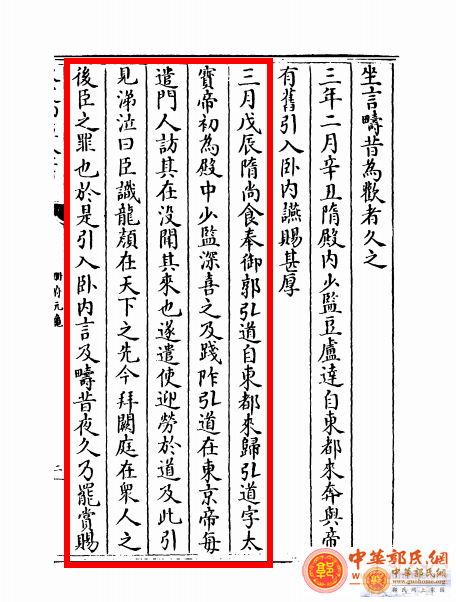 坐言疇昔為歡者久之
三年二月辛丑隋殿內少監豆盧達自東都來奔與帝
有舊引入卧内讌賜甚厚
三月戊辰隋尚食奉御郭弘道自東都來歸弘道字太
寶帝初為殿中少監深喜之及踐阼弘道在東京帝每
遣門人訪其在没聞其來也遂遣使迎勞於道及此引
見涕泣曰臣識龍顔在天下之先今拜闕庭在衆人之
後臣之罪也於是引入卧内言及疇昔夜久乃罷賞賜
册府元龜
二
中華郭氏網
www.guoshihome.com
中華郭氏網
www.guoshihome.com